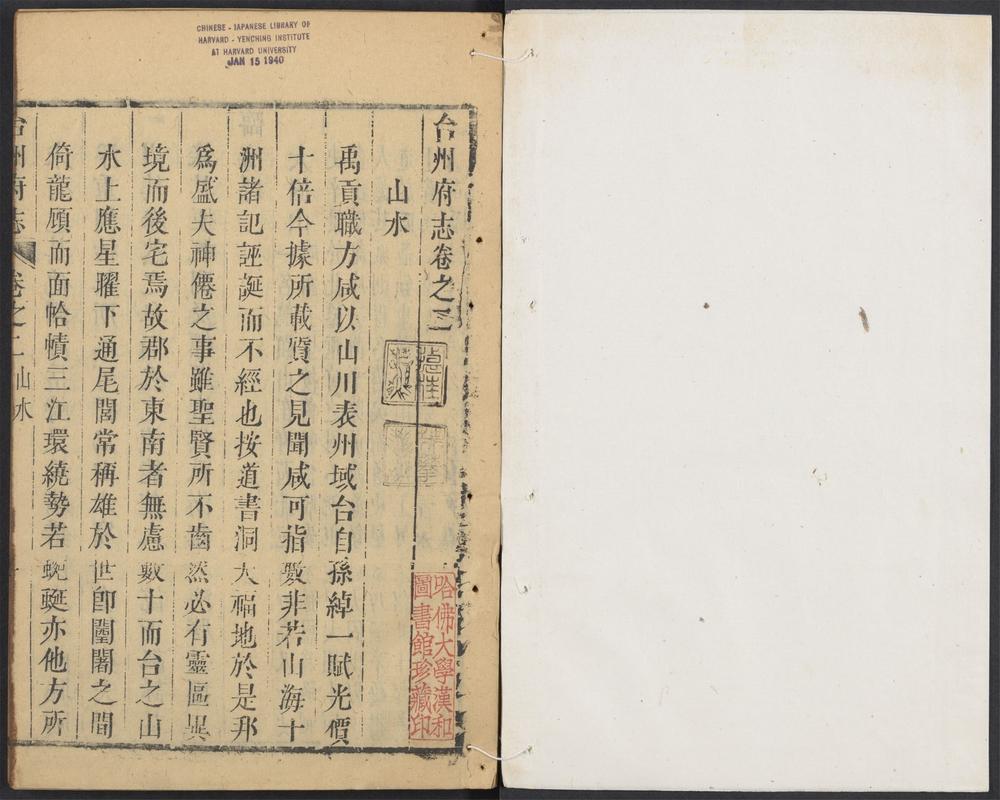 CHINESE - JAPANESE LIBRARY OF
HARVARD - YENCHING INSTITUTE
AT HARVARD UNIVERSITY
JAN 15 1940
台州府志卷之二
山水
禹貢職方咸以山川表州域台自孫綽一賦光價
十倍今據所載質之見聞咸可指數非若山海十
洲諸記誣誕而不經也按道書洞天福地於是邦
爲盛夫神僊之事雖聖賢所不齒然必有靈區異
境而後宅焉故郡於東南者無慮數十而台之山
水上應星曜下通尾閭常稱雄於世卽闤闠之間
倚龍顧而面帢幘三江環繞勢若蜿蜒亦他方所
台州府志 卷之二 山水
哈佛大學漢和
圖書館珍藏印